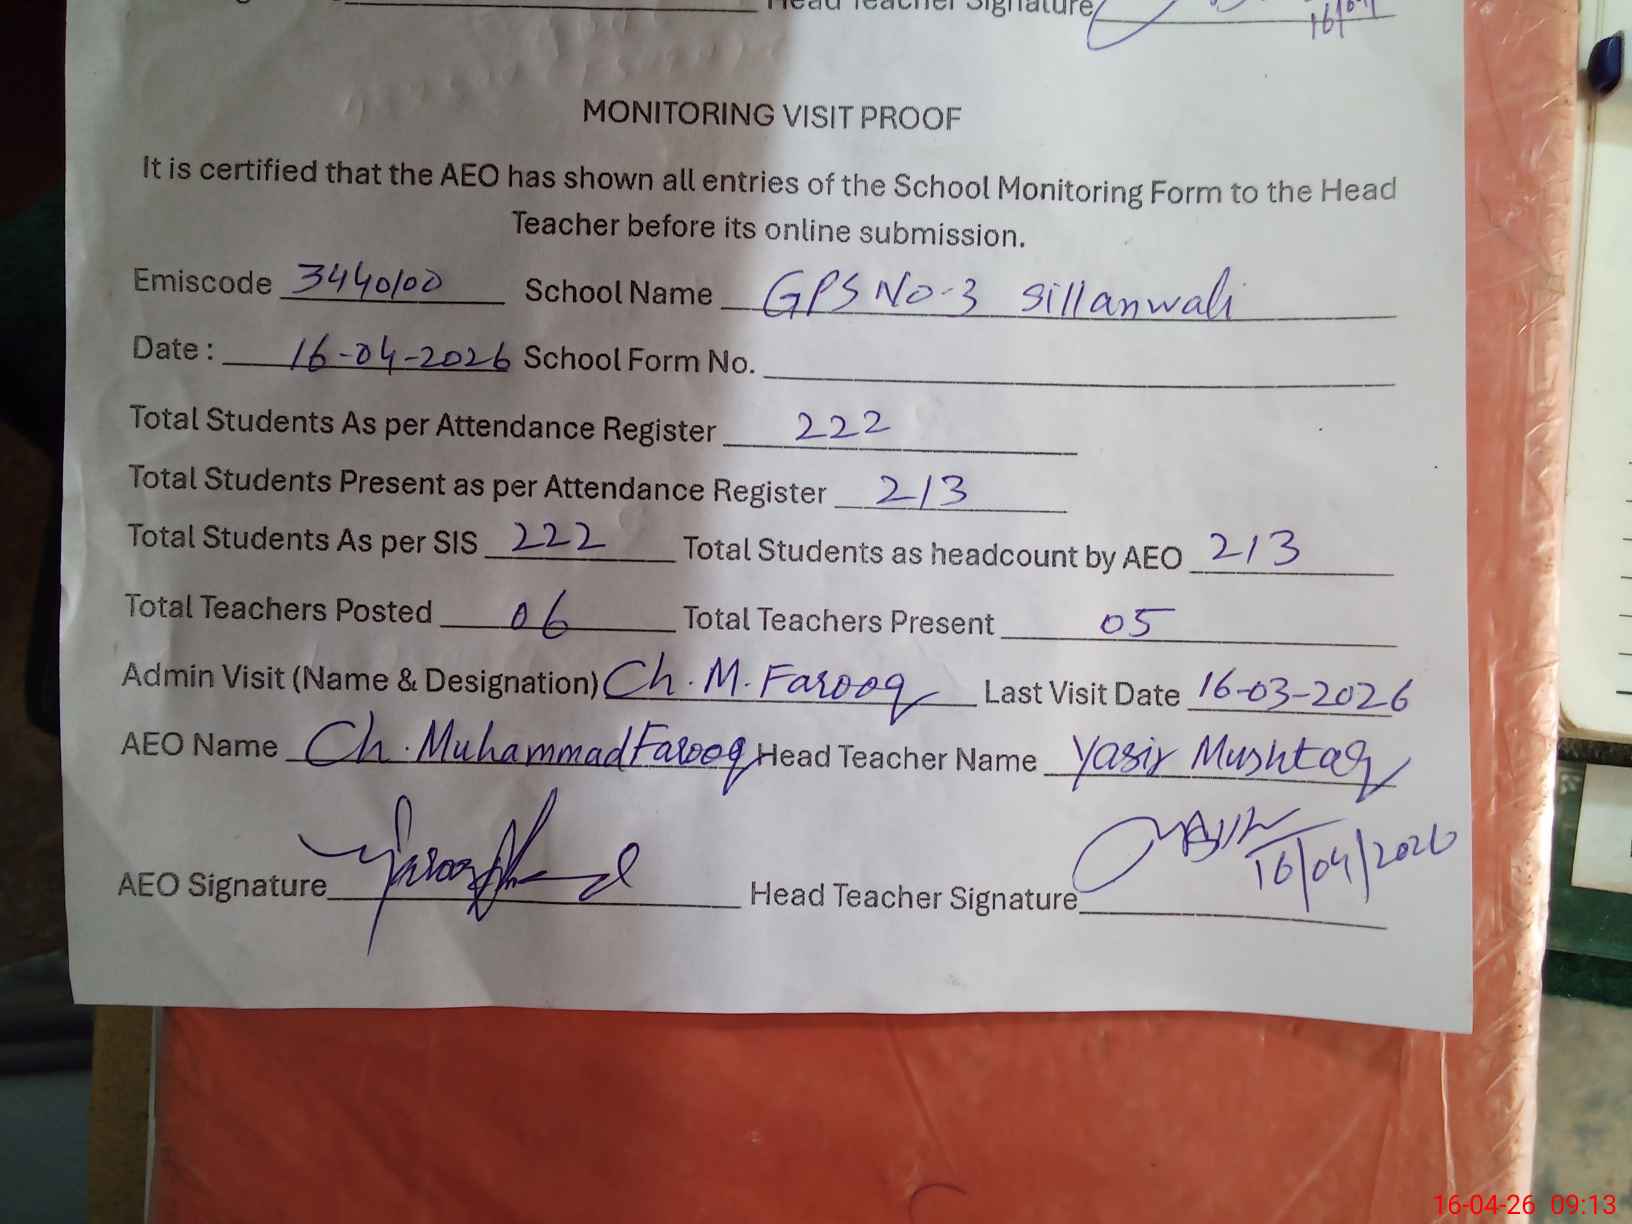 Head Teacher Signature
16/04
MONITORING VISIT PROOF
It is certified that the AEO has shown all entries of the School Monitoring Form to the Head
Teacher before its online submission.
Emiscode 3440100 School Name GPS No-3 Sillanwali
Date : 16-04-2026 School Form No.
Total Students As per Attendance Register 222
Total Students Present as per Attendance Register 213
Total Students As per SIS 222 Total Students as headcount by AEO 213
Total Teachers Posted 06 Total Teachers Present 05
Admin Visit (Name & Designation) Ch. M. Farooq Last Visit Date 16-03-2026
AEO Name Ch. Muhammad Farooq Head Teacher Name Yasir Mushtaq
AEO Signature Head Teacher Signature 16/04/2026
16-04-26 09:13